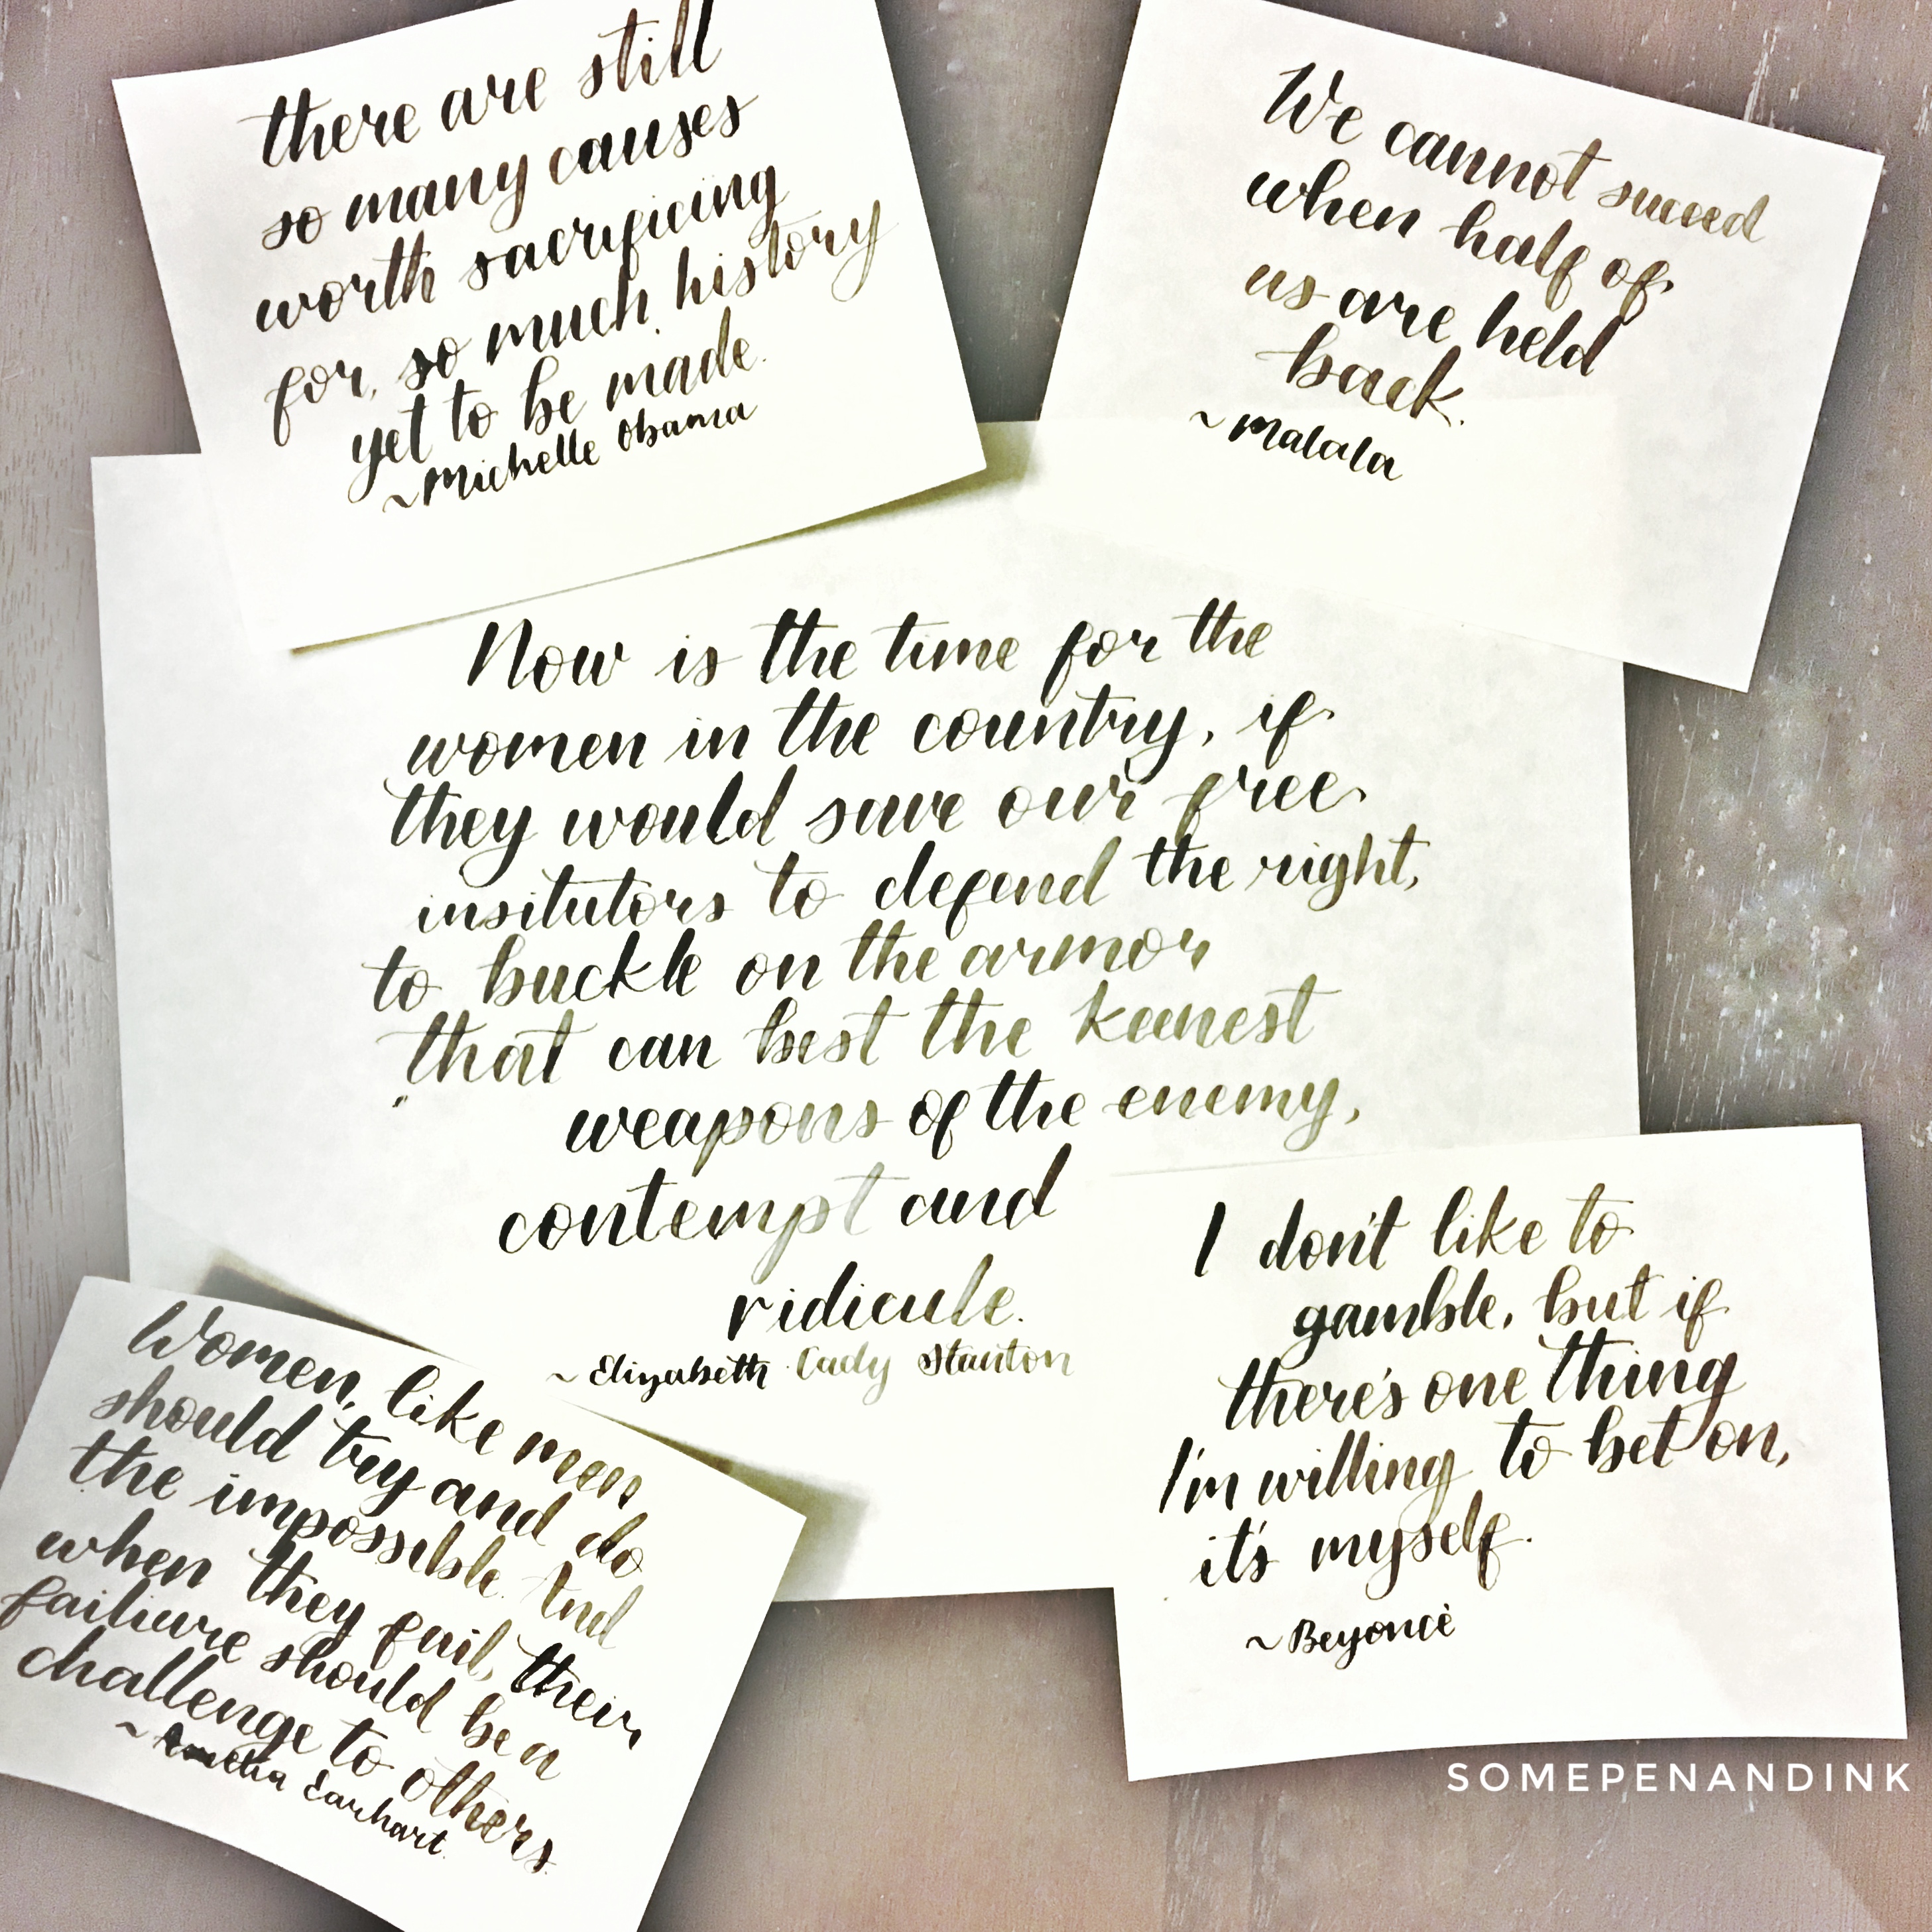 there are still
so many causes
worth sacrificing
for, so much history
yet to be made.
~Michelle Obama
We cannot succeed
when half of
us are held
back.
~Malala
Now is the time for the
women in the country, if
they would save our free
insitutors to defend the right,
to buckle on the armor
that can best the keenest
weapons of the enemy,
contempt and
ridicule.
~Elizabeth Cady Stanton
Women, like men
should try and do
the impossible. And
when they fail, their
failiure should be a
challenge to others.
~Amelia Earhart.
I don't like to
gamble, but if
there's one thing
I'm willing to bet on,
it's myself.
~Beyoncè
SOMEPENANDINK